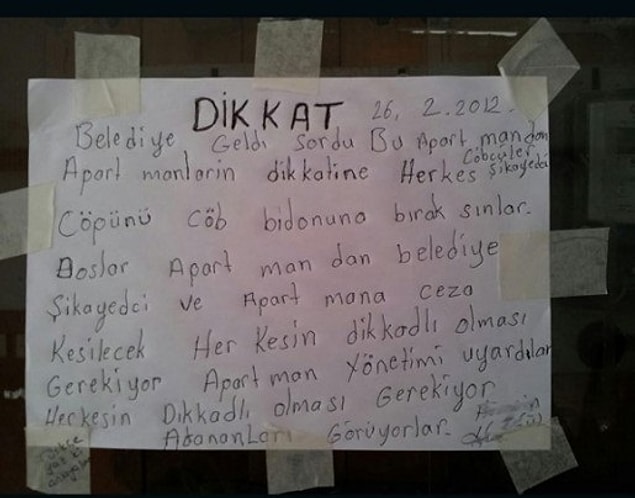 DİKKAT 26. 2.2012.
Belediye Geldi Sordu Bu Apart mandan
Cöbcüler
Apart manların dikkatine Herkes Şikayedci
Cöpünü cöb bidonuna bırak sınlar.
Apart man dan belediye
Şikayedci ve Apart mana ceza
Kesilecek Her Kesin dikkadlı olması
Gerekiyor Apart man Yönetimi uyardılar
Herkesin Dıkkadlı olması Gerekiyor
Atananları Görüyorlar.